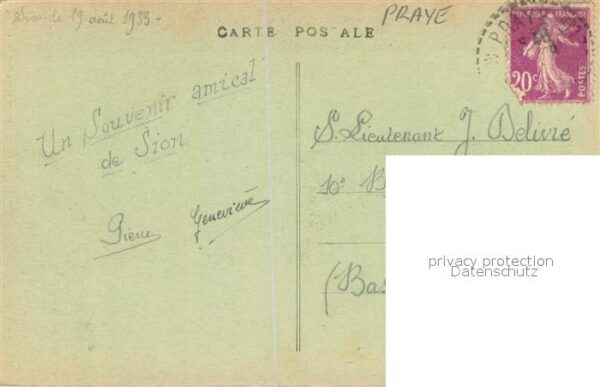 Sion le 29 août 1933.
CARTE POSTALE
PRAYE
RÉPUBLIQUE FRANÇAISE
20c
POSTES
Un Souvenir amical
de Sion
Pierre Geneviève
S. Lieutenant J. Delivré
10e B
(Bas
privacy protection
Datenschutz